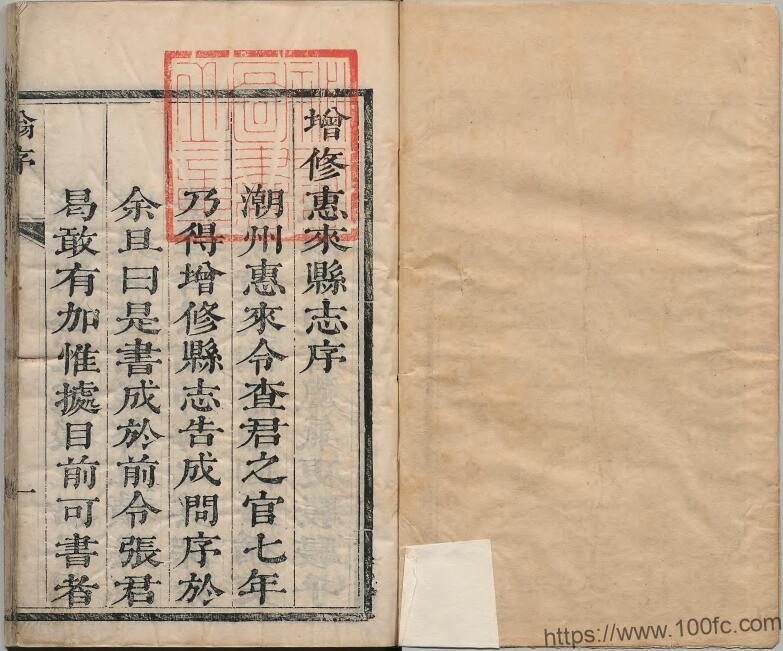 增修惠來縣志序
潮州惠來令查君之官七年
乃得增修縣志告成問序於
余且曰是書成於前令張君
曷敢有加惟據目前可書者
翁序
一
https://www.100fc.com